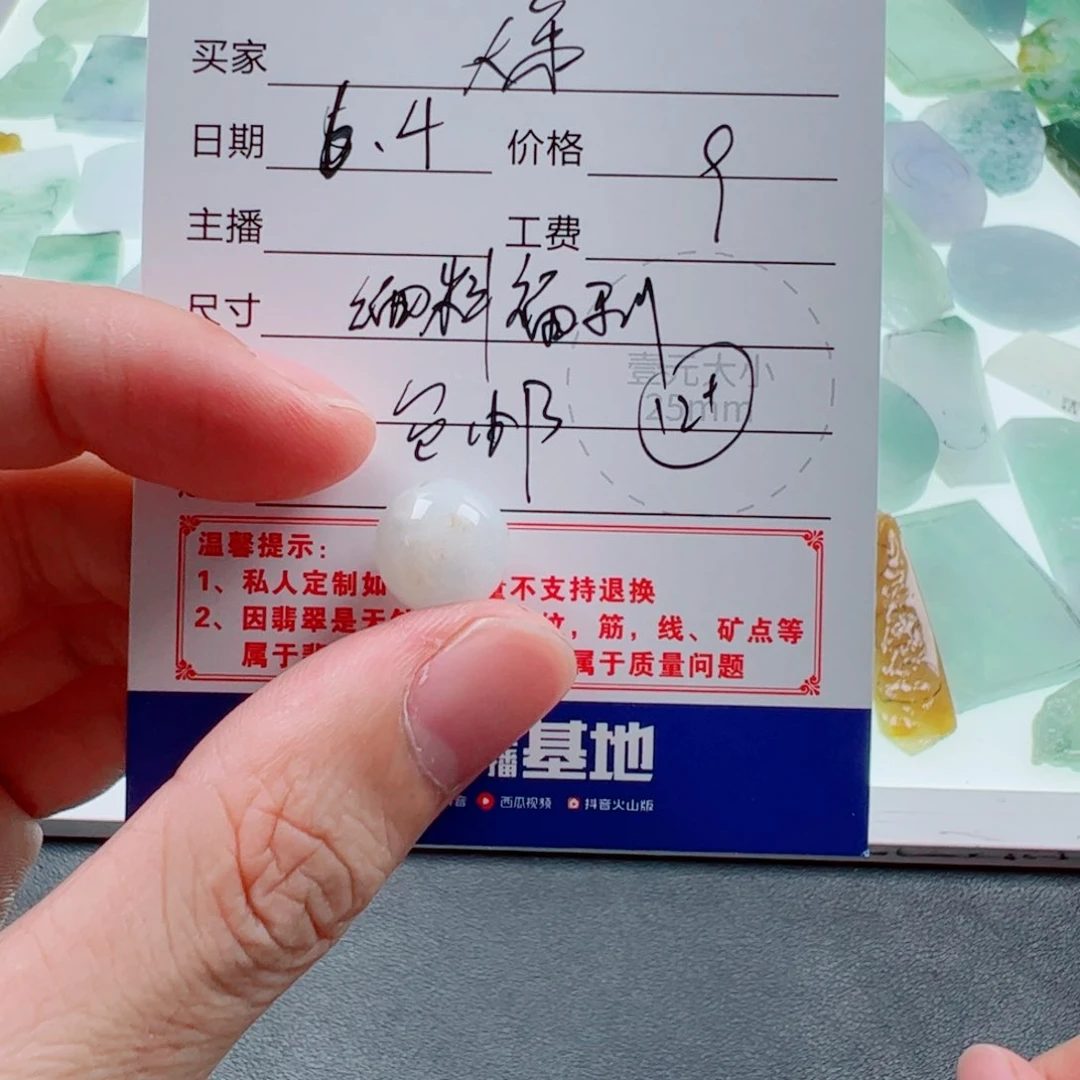 买家
日期 6.4 价格 9
主播 工费
尺寸 细料福利
壹元大小
25mm
包邮 12+
温馨提示：
1、私人定制如 量不支持退换
2、因翡翠是天 纹，筋，线、矿点等
属于翡 属于质量问题
播基地
音 西瓜视频 抖音火山版